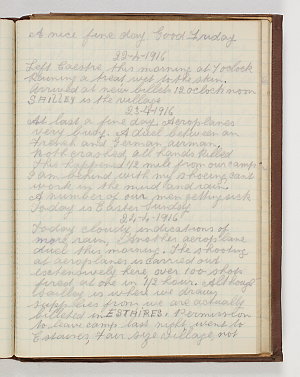 A nice fine day Good Friday
22-4-1916
Left Caestre this morning at 7 oclock
Raining a treat wet to the skin.
Arrived at new billets 12 oclock noon
SAILLEY is the village
23-4-1916
At last a fine day. Aeroplanes
very busy. A duel between an
French and German airman.
Both crashed all hands killed
This happened 1/2 mile from our camp
I am behind with my shoeing cant
work in the mud and rain.
A number of our men getting sick
Today is Easter Sunday
24-4-1916
Today cloudy indications of
more rain. Another aeroplane
duel this morning. The shooting
at aeroplanes is carried out
extensively here, over 100 shots
fired at one in 1/2 hour. Although
Sailley is where we draw
supplies from we are actually
billeted in ESTAIRES. Permission
to leave camp last night went to
Estaires, Fair size village, not